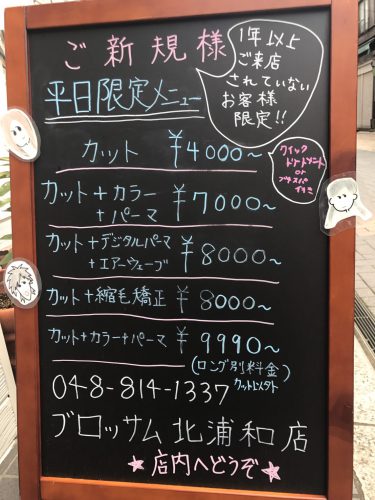 ご新規様
1年以上
ご来店
されていない
お客様
限定!!
平日限定メニュー
カット ¥4000~
クイック
トリートメント
or
プチスパ
付き
カット+カラー
+パーマ ¥7000~
カット+デジタルパーマ
+エアーウェーブ ¥8000~
カット+縮毛矯正 ¥8000~
カット+カラー+パーマ ¥9990~
(ロング別料金)
カット以外
048-814-1337
ブロッサム北浦和店
★店内へどうぞ★